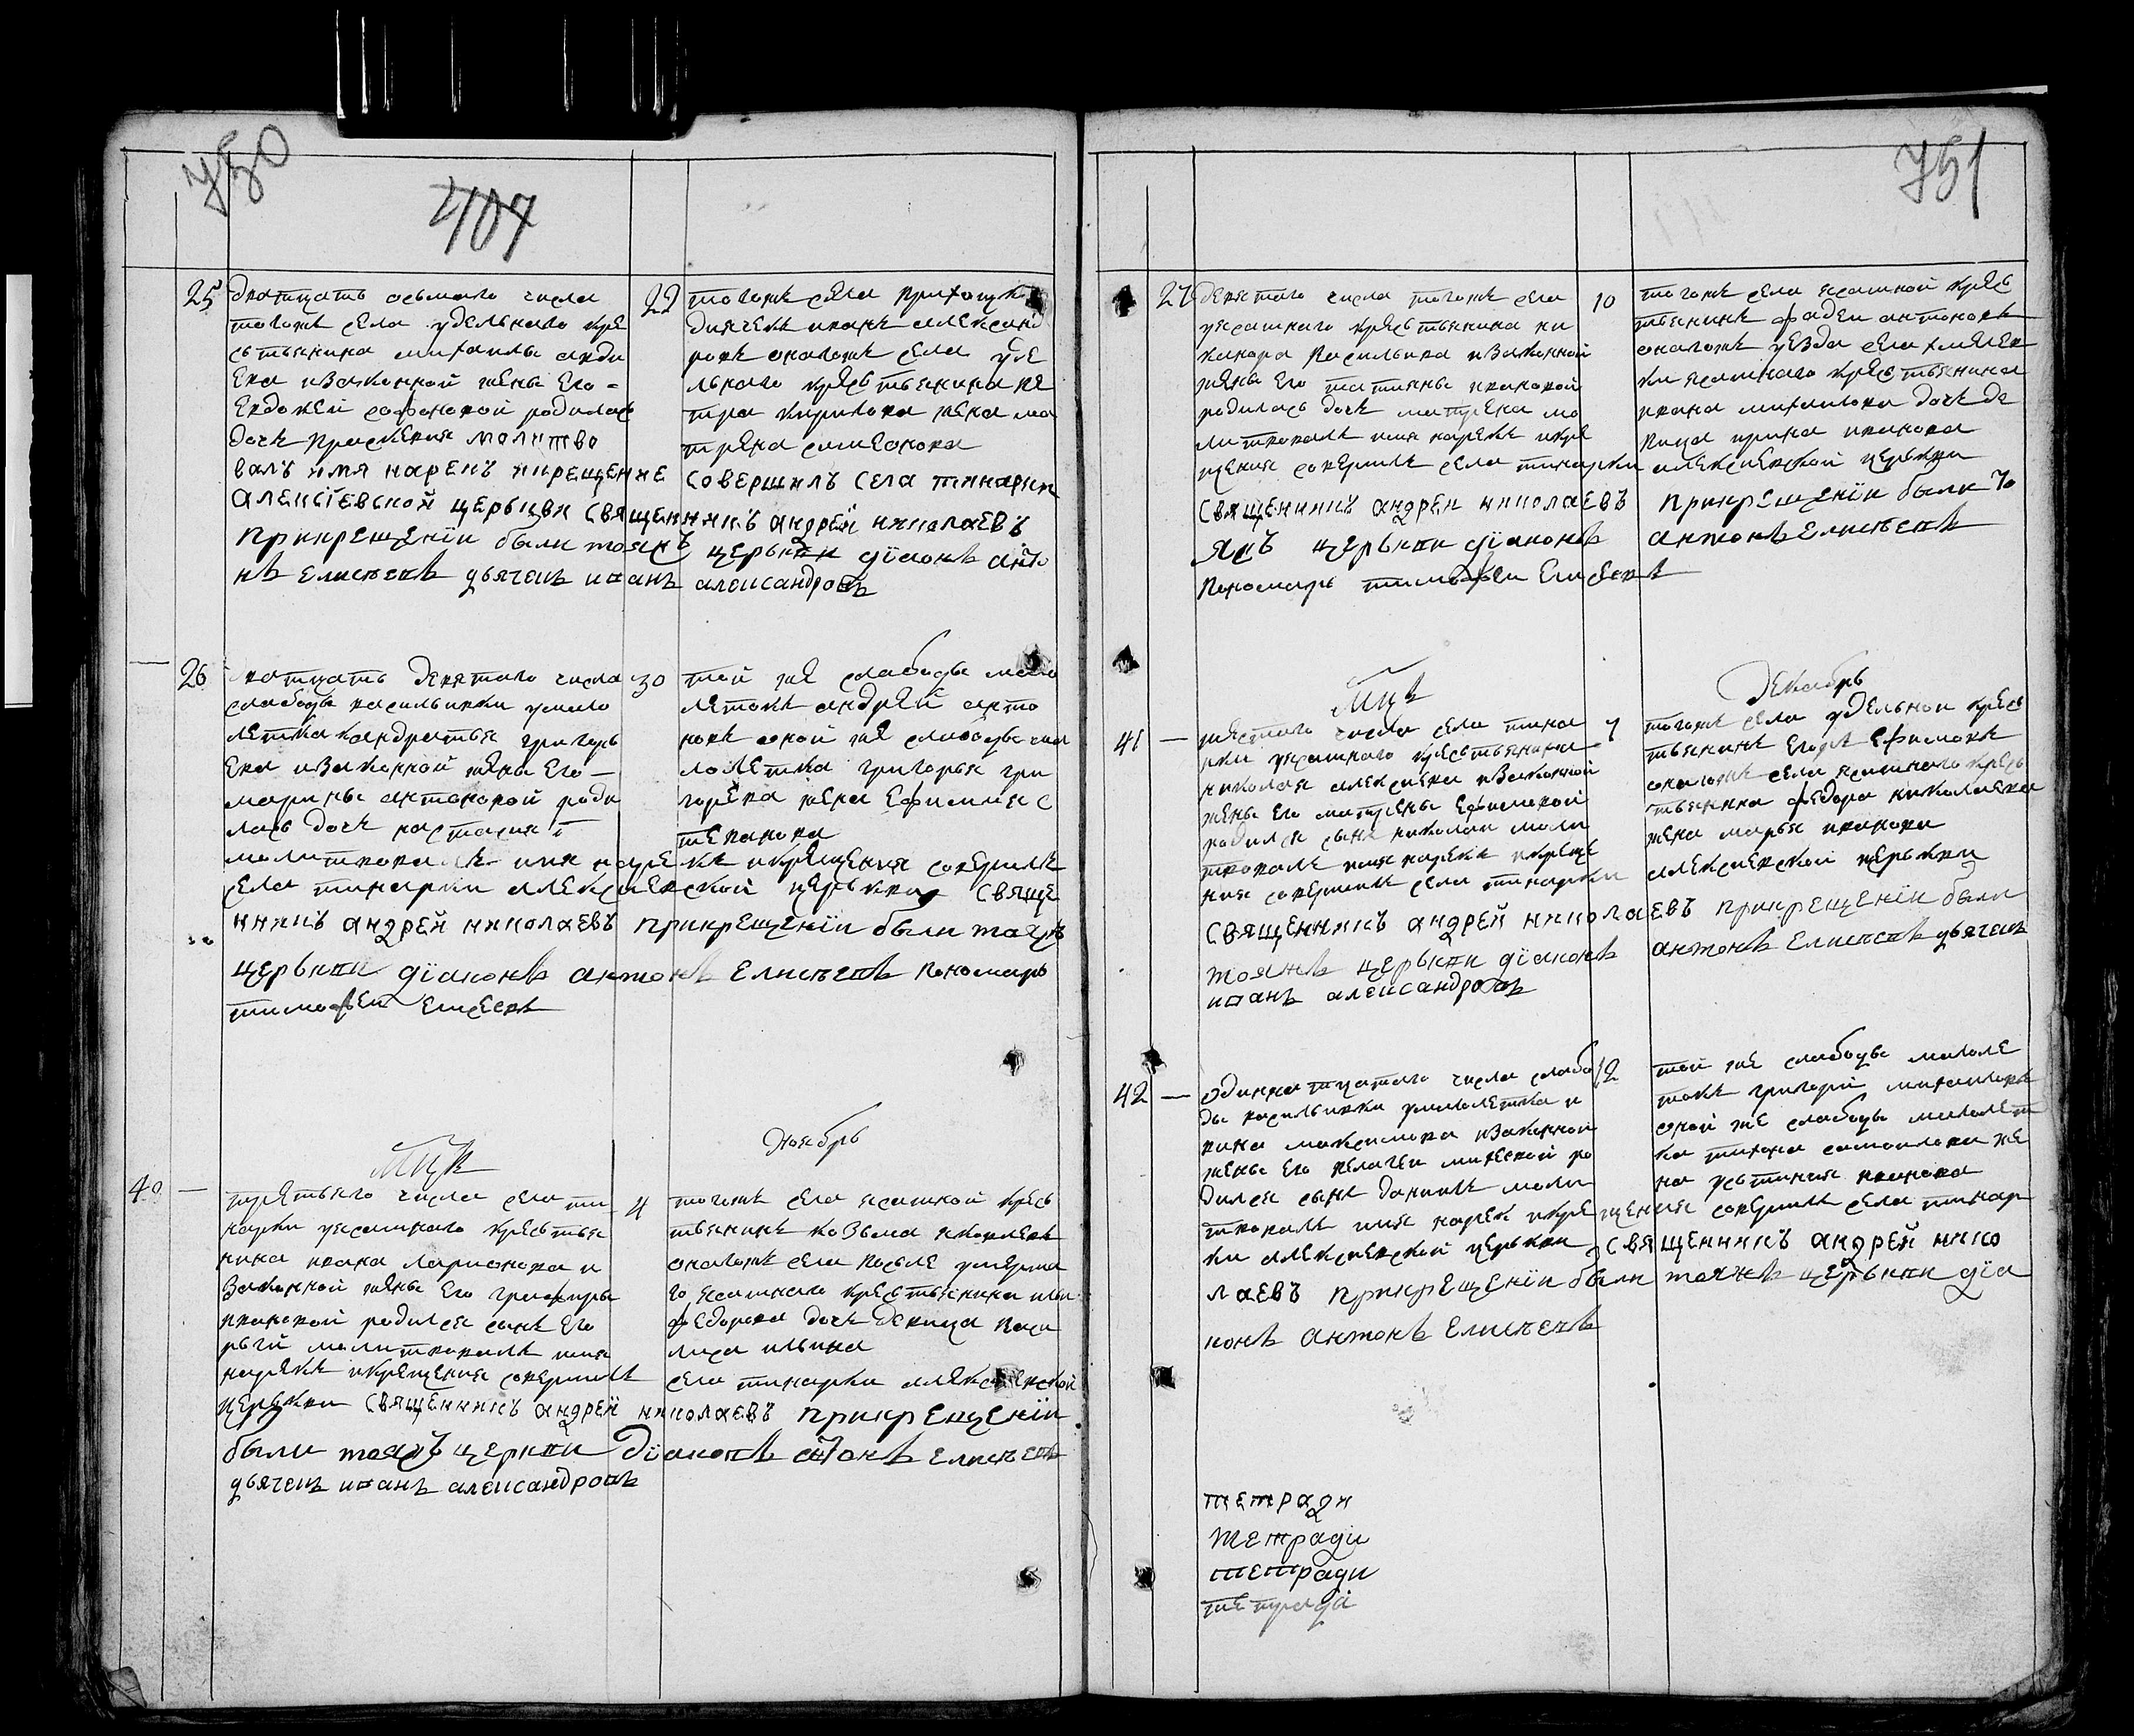 750
407
25
дватцать осьмаго числа
тогожъ села удельнаго кре
сьтьянина михаилы авди
ева изаконной жены его
евдокеи сафоновой родилась
дочь праскевия молитво
валъ имя нарекъ икрещение
алеѯіевской церькви священникъ андрей николаевъ
прикрещеніи были тояжъ церькви діаконъ анто
нъ елисѣевъ дьячекъ иванъ александровъ
22
тогожъ села приходцкой
диячекъ иванъ александ
ровъ оногожъ села уде
льнаго кресьтьянина пе
тра кирилова жена ма
трена симеонова
совершилъ села тинарки
26
дватцать девятого числа
слабоды васильевки
кандратья григорь
ева изаконной жены его
марины антоновой роди
лась дочь настасия
молитвовалъ имя нарекъ икрещения совершилъ
села тинарки алексиевской церькви свяще
нникъ андрей николаевъ прикрещеніи были тояжъ
церькви діаконъ антонъ елисѣевъ пономарь
тимофеи елисеевъ
30
той же слабоды мало
летокъ андрей анто
новъ оной же слабоды ма
лолетка григорья гри
горева жена ефимия с
тепанова
мцъ
ноябрь
40
третьяго числа села ти
нарки уясашнаго кресьтья
нина ивана ларионова и
законной жены его
ивановой родился сынъ его
рьий молитвовалъ имя
нарекъ икрещения совершилъ
церькви священникъ андрей николаевъ прикрещеніи
были тояжъ церкви діаконъ антонъ елисѣевъ
дьячекъ иванъ александровъ
4
тогожъ села ясашной кресь
тьянинъ козьма яковлевъ
оногожъ села после умерша
го ясашнаго кресьтьянина ильи
федорова дочь девица васи
лиса ильина
села тинарки алексиевской
751
27
девятого числа тогожъ села
уясашнаго кресьтьянина ни
канора васильива изаконной
жены его татияны ивановой
родилась дочь матрена мо
литвовалъ имя нарекъ икре
щения совершилъ села тинарки алексиевской церькви
священникъ андреи николаевъ прикрещеніи были то
яжъ церькви діаконъ антонъ елисѣевъ
пономарь тимофеи елисеевъ
10
тогожъ села ясашной кресь
тьянинъ фадеи антоновъ
оногожъ уезда села хмелев
ки ясашнаго кресьтьянина
ивана михаилова дочь де
вица ирина иванова
мцъ
декабрь
41
шестого числа села тина
рки уясашнаго кресьтьянина
николая алексиева изаконной
жены его матрены ефимовой
родился сынъ николаи моли
твовалъ имя нарекъ икреще
ния совершилъ села тинарки алексиевской церькви
священникъ андрей николаевъ прикрещеніи были
тояжъ церькви діаконъ антонъ елисѣевъ дьячекъ
иванъ александровъ
7
тогожъ села удельной кресь
тьянинъ егоръ ефимовъ
оногожъ села ясашнаго кресь
тьянина федора николаева
жена марья иванова
42
одиннатцатого числа слабо
ды васильевки умалолетка и
вана максимова изаконной
жены его пелагеи михевой ро
дился сынъ данилъ моли
твовалъ имя нарек икрещения совершилъ села тинар
ки алексиевской церькви священникъ андрей нико
лаевъ прикрещеніи были тояжъ церькви діа
конъ антонъ елисѣевъ
12
той же слабоды малоле
токъ григорій михаиловъ
оной же слабоды малолет
ка тихона самоилова же
на устиния иванова
тетради
тетради
тетради
тетраді